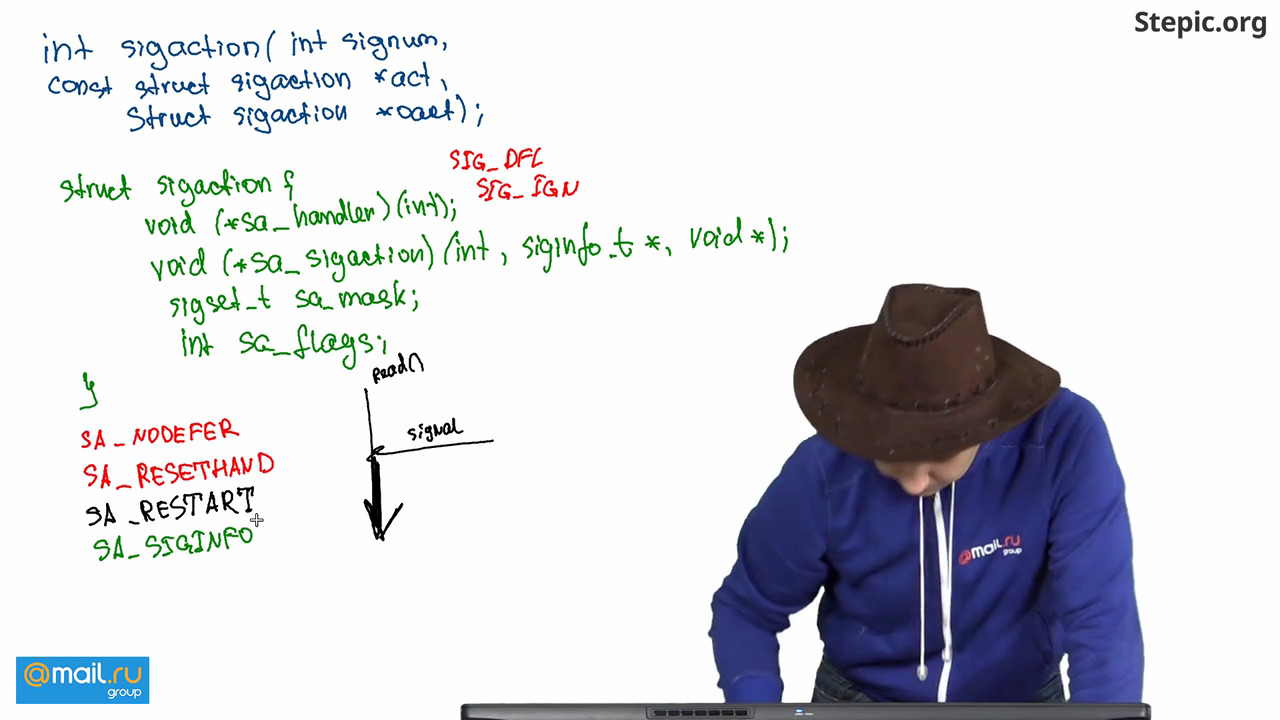 Stepic.org
int sigaction( int signum,
const struct sigaction *act,
struct sigaction *oact);
SIG_DFL
SIG_IGN
struct sigaction {
void (*sa_handler)(int);
void (*sa_sigaction)(int, siginfo_t *, void *);
sigset_t sa_mask;
int sa_flags;
}
read()
signal
SA_NODEFER
SA_RESETHAND
SA_RESTART
SA_SIGINFO
@mail.ru
group
@mail.ru
group